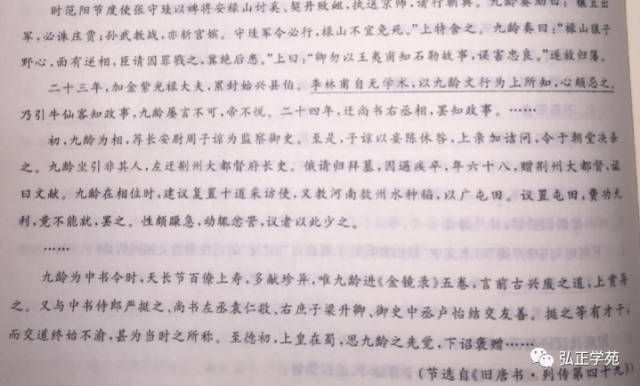 时范阳节度使张守珪以裨将安禄山讨奚、契丹败衄，执送京师，请行朝典。九龄奏劾曰：“穰苴出
军，必诛庄贾；孙武教战，亦斩宫嫔。守珪军令必行，禄山不宜免死。”上特舍之。九龄奏曰：“禄山狼子
野心，面有逆相，臣请因罪戮之，冀绝后患。”上曰：“卿勿以王夷甫知石勒故事，误害忠良。”遂放归藩。
二十三年，加金紫光禄大夫，累封始兴县伯。李林甫自无学术，以九龄文行为上所知，心颇忌之。
乃引牛仙客知政事，九龄屡言不可，帝不悦。二十四年，迁尚书右丞相，罢知政事。……
初，九龄为相，荐长安尉周子谅为监察御史。至是，子谅以妄陈休咎，上亲加诘问，令于朝堂决杀
之。九龄坐引非其人，左迁荆州大都督府长史。俄请归拜墓，因遇疾卒，年六十八，赠荆州大都督，谥
曰文献。九龄在相位时，建议复置十道采访使，又教河南数州水种稻，以广屯田。议置屯田，费功无
利，竟不能就，罢之。性颇躁急，动辄忿詈，议者以此少之。
……
九龄为中书令时，天长节百僚上寿，多献珍异，唯九龄进《金镜录》五卷，言前古兴废之道，上赏异
之。又与中书侍郎严挺之、尚书左丞袁仁敬、右庶子梁升卿、御史中丞卢怡结交友善。挺之等有才干，
而交道终始不渝，甚为当时之所称。至德初，上皇在蜀，思九龄之先觉，下诏褒赠……
（节选自《旧唐书·列传第四十九》）
弘正学苑